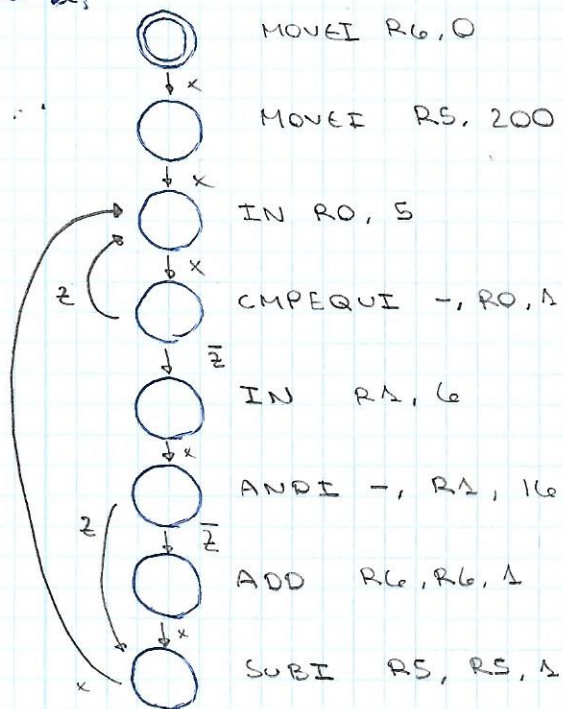 MOVEI R6, 0
x
MOVEI R5, 200
x
IN R0, 5
x
z
CMPEQUI -, R0, 1
z̅
IN R1, 6
x
ANDI -, R1, 16
z
z̅
ADD R6, R6, 1
x
SUBI R5, R5, 1
x